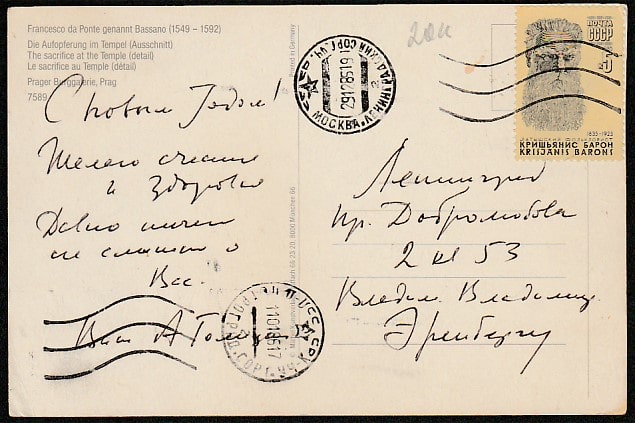 Francesco da Ponte genannt Bassano (1549 – 1592)
Die Aufopferung im Tempel (Ausschnitt)
The sacrifice at the Temple (detail)
Le sacrifice au Temple (détail)
Prager Burggalerie, Prag
7589
С новым Годом!
Желаю счастья
и здоровья
Давно ничего
не слышал о
Вас.
Ваш А
Printed in Germany
МОСКВА
ПОЧТА
СССР
5
1835-1923
КРИШЬЯНИС БАРОН
KRIŠJĀNIS BARONS
20к
Ленинград
пр. Добролюбова
2 кв 53
Владим. Владимир.
Эренбергу